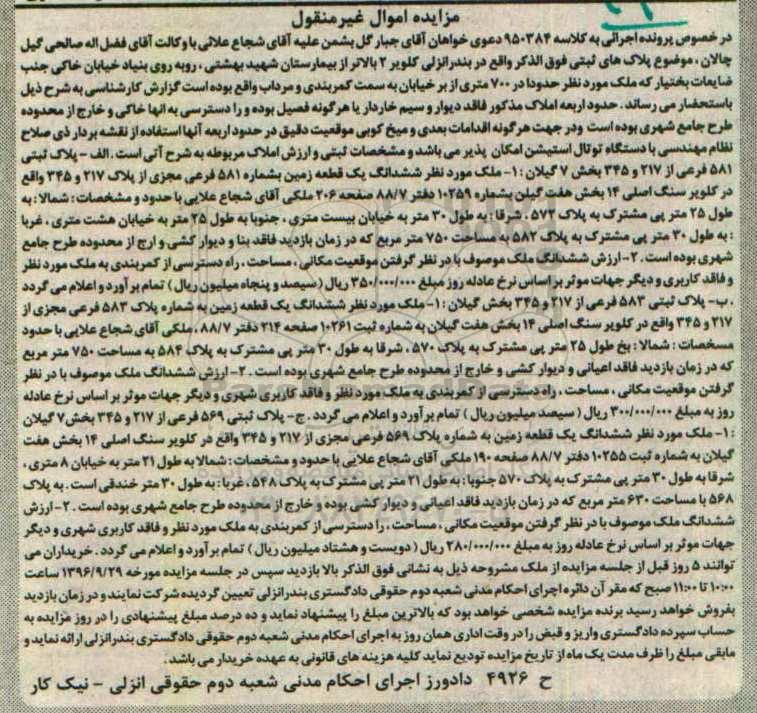 مزایده اموال غیرمنقول
در خصوص پرونده اجرائی به کلاسه ۹۵۰۳۸۴ دعوی خواهان آقای جبار گل بشمن علیه آقای شجاع علائی با وکالت آقای فضل اله صالحی گیل
چالان ، موضوع پلاک های ثبتی فوق الذکر واقع در بندرانزلی کلویر ۲ بالاتر از بیمارستان شهید بهشتی ، روبه روی بنیاد خیابان خاکی جنب
ضایعات بختیار که ملک مورد نظر حدودا در ۷۰۰ متری از بر خیابان به سمت کمربندی و مرداب واقع بوده است گزارش کارشناسی به شرح ذیل
باستحضار می رساند . حدود اربعه املاک مذکور فاقد دیوار و سیم خاردار یا هرگونه فصیل بوده و را دسترسی به انها خاکی و خارج از محدوده
طرح جامع شهری بوده است ودر جهت هرگونه اقدامات بعدی و میخ کوبی موقعیت دقیق در حدود اربعه آنها استفاده از نقشه بردار ذی صلاح
نظام مهندسی با دستگاه توتال استیشن امکان پذیر می باشد و مشخصات ثبتی و ارزش املاک مربوطه به شرح آتی است . الف - پلاک ثبتی
۵۸۱ فرعی از ۲۱۷ و ۳۴۵ بخش ۷ گیلان : ۱- ملک مورد نظر ششدانگ یک قطعه زمین بشماره ۵۸۱ فرعی مجزی از پلاک ۲۱۷ و ۳۴۵ واقع
در کلویر سنگ اصلی ۱۴ بخش هفت گیلن بشماره ۱۰۲۵۹ دفتر ۸۸/۷ صفحه ۲۰۶ ملکی آقای شجاع علایی با حدود و مشخصات : شمالا : به
طول ۲۵ متر پی مشترک به پلاک ۵۷۲ ، شرقا : به طول ۳۰ متر به خیابان بیست متری ، جنوبا به طول ۲۵ متر به خیابان هشت متری ، غربا
: به طول ۳۰ متر پی مشترک به پلاک ۵۸۲ به مساحت ۷۵۰ متر مربع که در زمان بازدید فاقد بنا و دیوار کشی و ارج از محدوده طرح جامع
شهری بوده است . ۲- ارزش ششدانگ ملک موصوف با در نظر گرفتن موقعیت مکانی ، مساحت ، راه دسترسی از کمربندی به ملک مورد نظر
و فاقد کاربری و دیگر جهات موثر بر اساس نرخ عادله روز مبلغ ۳۵۰/۰۰۰/۰۰۰ ریال ( سیصد و پنجاه میلیون ریال ) تمام بر آورد و اعلام می گردد
. ب- پلاک ثبتی ۵۸۳ فرعی از ۲۱۷ و ۳۴۵ بخش گیلان : ۱- ملک مورد نظر ششدانگ یک قطعه زمین به شماره پلاک ۵۸۳ فرعی مجزی از
۲۱۷ و ۳۴۵ واقع در کلویر سنگ اصلی ۱۴ بخش هفت گیلان به شماره ثبت ۱۰۲۶۱ صفحه ۲۱۴ دفتر ۸۸/۷ ، ملکی آقای شجاع علایی با حدود
مسخصات : شمالا : بخ طول ۲۵ متر پی مشترک به پلاک ۵۷۰ ، شرقا به طول ۳۰ متر پی مشترک به پلاک ۵۸۴ به مساحت ۷۵۰ متر مربع
که در زمان بازدید فاقد اعیانی و دیوار کشی و خارج از محدوده طرح جامع شهری بوده است . ۲- ارزش ششدانگ ملک موصوف با در نظر
گرفتن موقعیت مکانی ، مساحت ، راه دسترسی از کمربندی به ملک مورد نظر و فاقد کاربری شهری و دیگر جهات موثر بر اساس نرخ عادله
روز به مبلغ ۳۰۰/۰۰۰/۰۰۰ ریال ( سیصد میلیون ریال ) تمام برآورد و اعلام می گردد . ج- پلاک ثبتی ۵۶۹ فرعی از ۲۱۷ و ۳۴۵ بخش۷ گیلان
: ۱- ملک مورد نظر ششدانگ یک قطعه زمین به شماره پلاک ۵۶۹ فرعی مجزی از ۲۱۷ و ۳۴۵ واقع در کلویر سنگ اصلی ۱۴ بخش هفت
گیلان به شماره ثبت ۱۰۲۵۵ دفتر ۸۸/۷ صفحه ۱۹۰ ملکی آقای شجاع علایی با حدود و مشخصات : شمالا به طول ۲۱ متر به خیابان ۸ متری ،
شرقا به طول ۳۰ متر پی مشترک به پلاک ۵۷۰ جنوبا : به طول ۲۱ متر پی مشترک به پلاک ۵۴۸ ، غربا : به طول ۳۰ متر خندقی است . به پلاک
۵۶۸ با مساحت ۶۳۰ متر مربع که در زمان بازدید فاقد اعیانی و دیوار کشی بوده و خارج از محدوده طرح جامع شهری بوده است . ۲- ارزش
ششدانگ ملک موصوف با در نظر گرفتن موقعیت مکانی ، مساحت ، را دسترسی از کمربندی به ملک مورد نظر و فاقد کاربری شهری و دیگر
جهات موثر بر اساس نرخ عادله روز به مبلغ ۲۸۰/۰۰۰/۰۰۰ ریال ( دویست و هشتاد میلیون ریال ) تمام بر آورد و اعلام می گردد . خریداران می
توانند ۵ روز قبل از جلسه مزایده از ملک مشروحه ذیل به نشانی فوق الذکر بالا بازدید سپس در جلسه مزایده مورخه ۱۳۹۶/۹/۲۹ ساعت
۱۰:۰۰ تا ۱۱:۰۰ صبح که مقر آن دائره اجرای احکام مدنی شعبه دوم حقوقی دادگستری بندرانزلی تعیین گردیده شرکت نمایند و در زمان بازدید
بفروش خواهد رسید برنده مزایده شخصی خواهد بود که بالاترین مبلغ را پیشنهاد نماید و ده درصد مبلغ پیشنهادی را در روز مزایده به
حساب سپرده دادگستری واریز و قبض را در وقت اداری همان روز به اجرای احکام مدنی شعبه دوم حقوقی دادگستری بندرانزلی ارائه نماید و
مابقی مبلغ را ظرف مدت یک ماه از تاریخ مزایده تودیع نماید کلیه هزینه های قانونی به عهده خریدار می باشد .
ح ۴۹۲۶ دادورز اجرای احکام مدنی شعبه دوم حقوقی انزلی - نیک کار